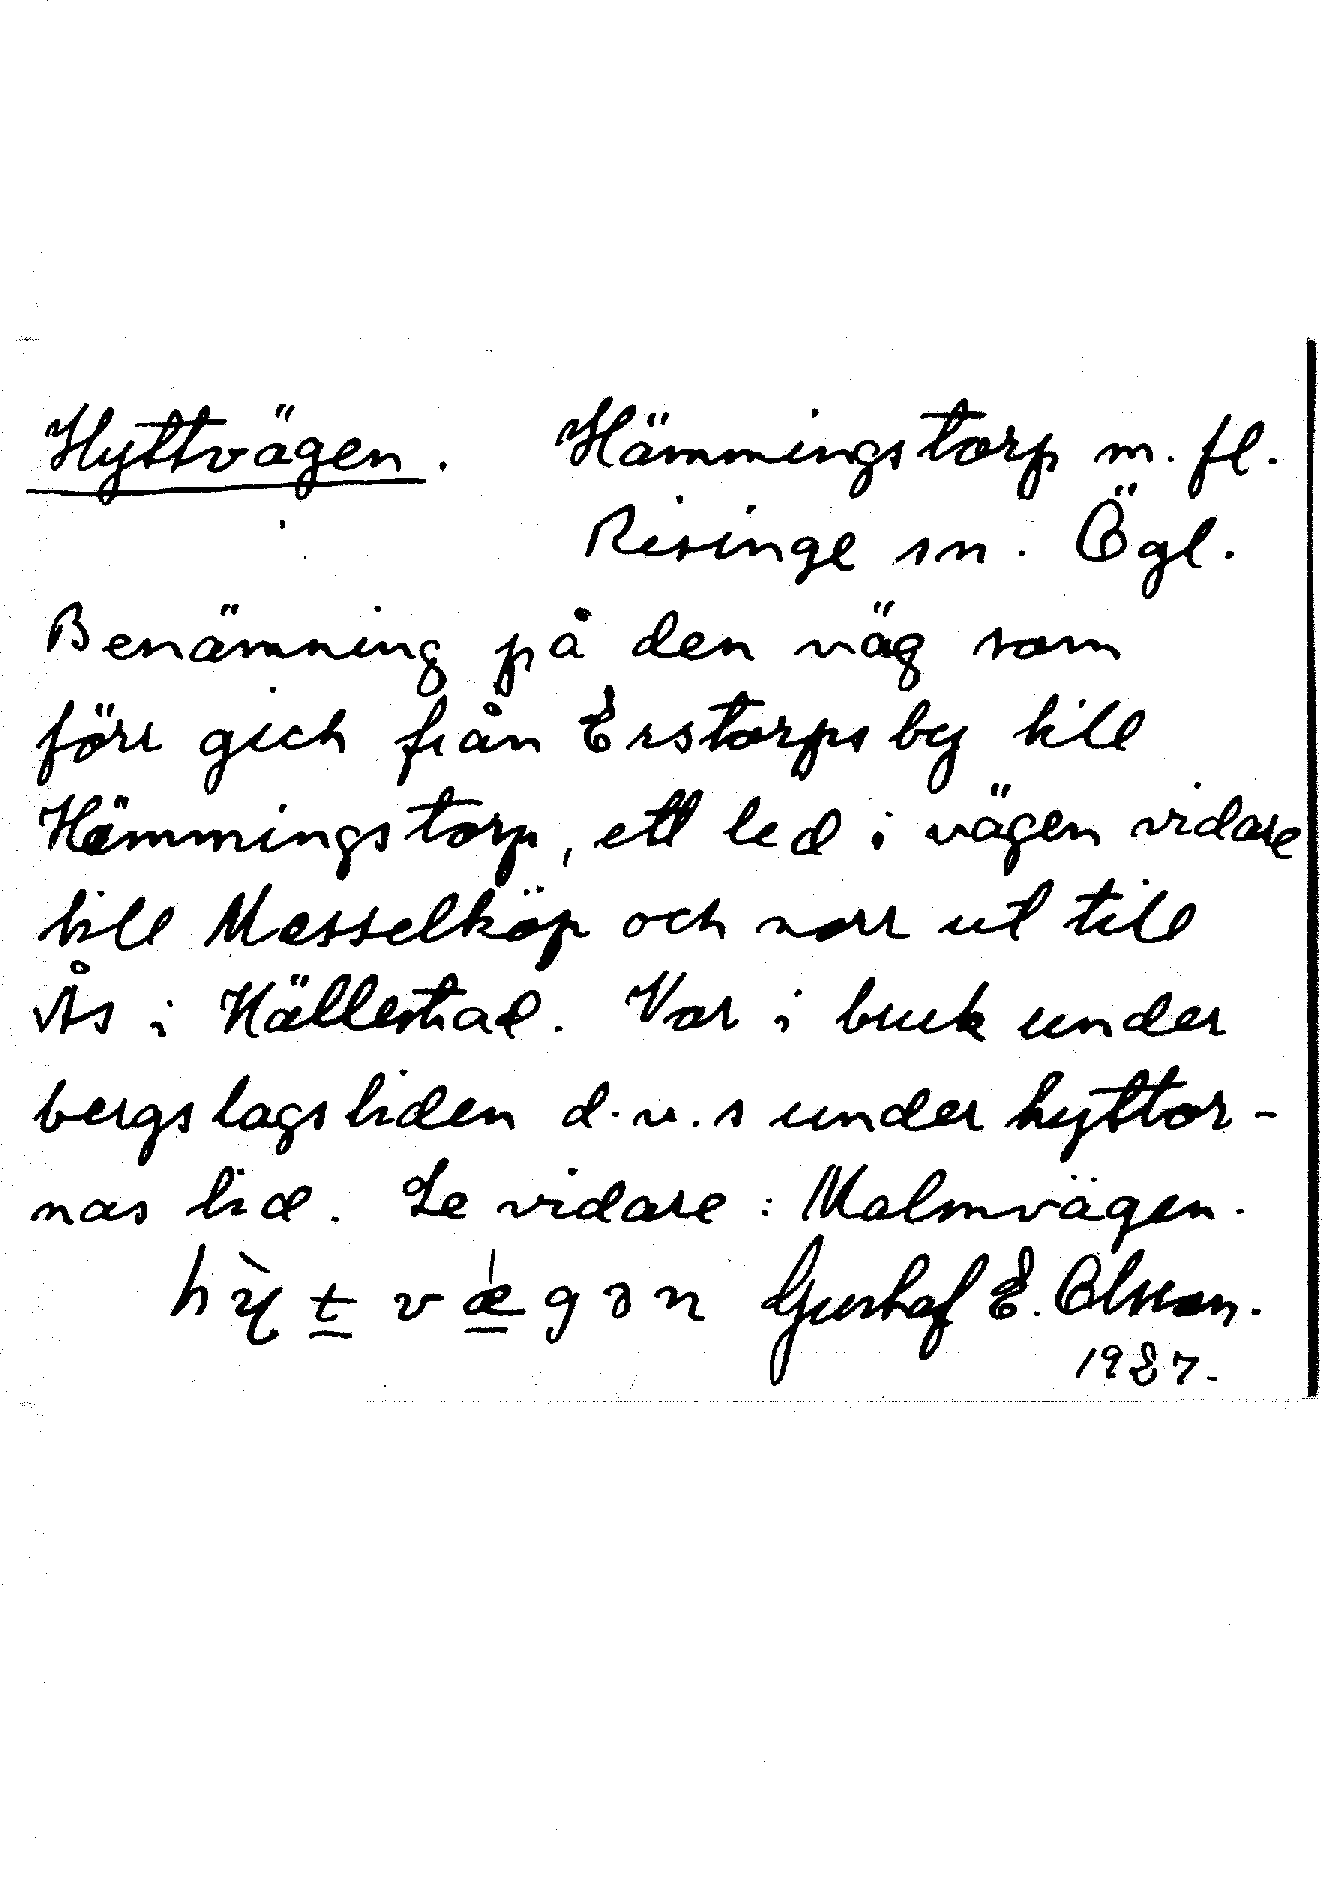 Hyttvägen. Hämmingstorp m. fl.
Risinge sn. Ögl.
Benämning på den väg som
förr gick från Erstorps by till
Hämmingstorp, ett led i vägen vidare
till Messelköp och norr ut till
Ås i Hällestad. Var i bruk under
bergslagstiden d.v.s under hyttor-
nas tid. Se vidare: Malmvägen.
Gustaf E. Olsson.
1987.